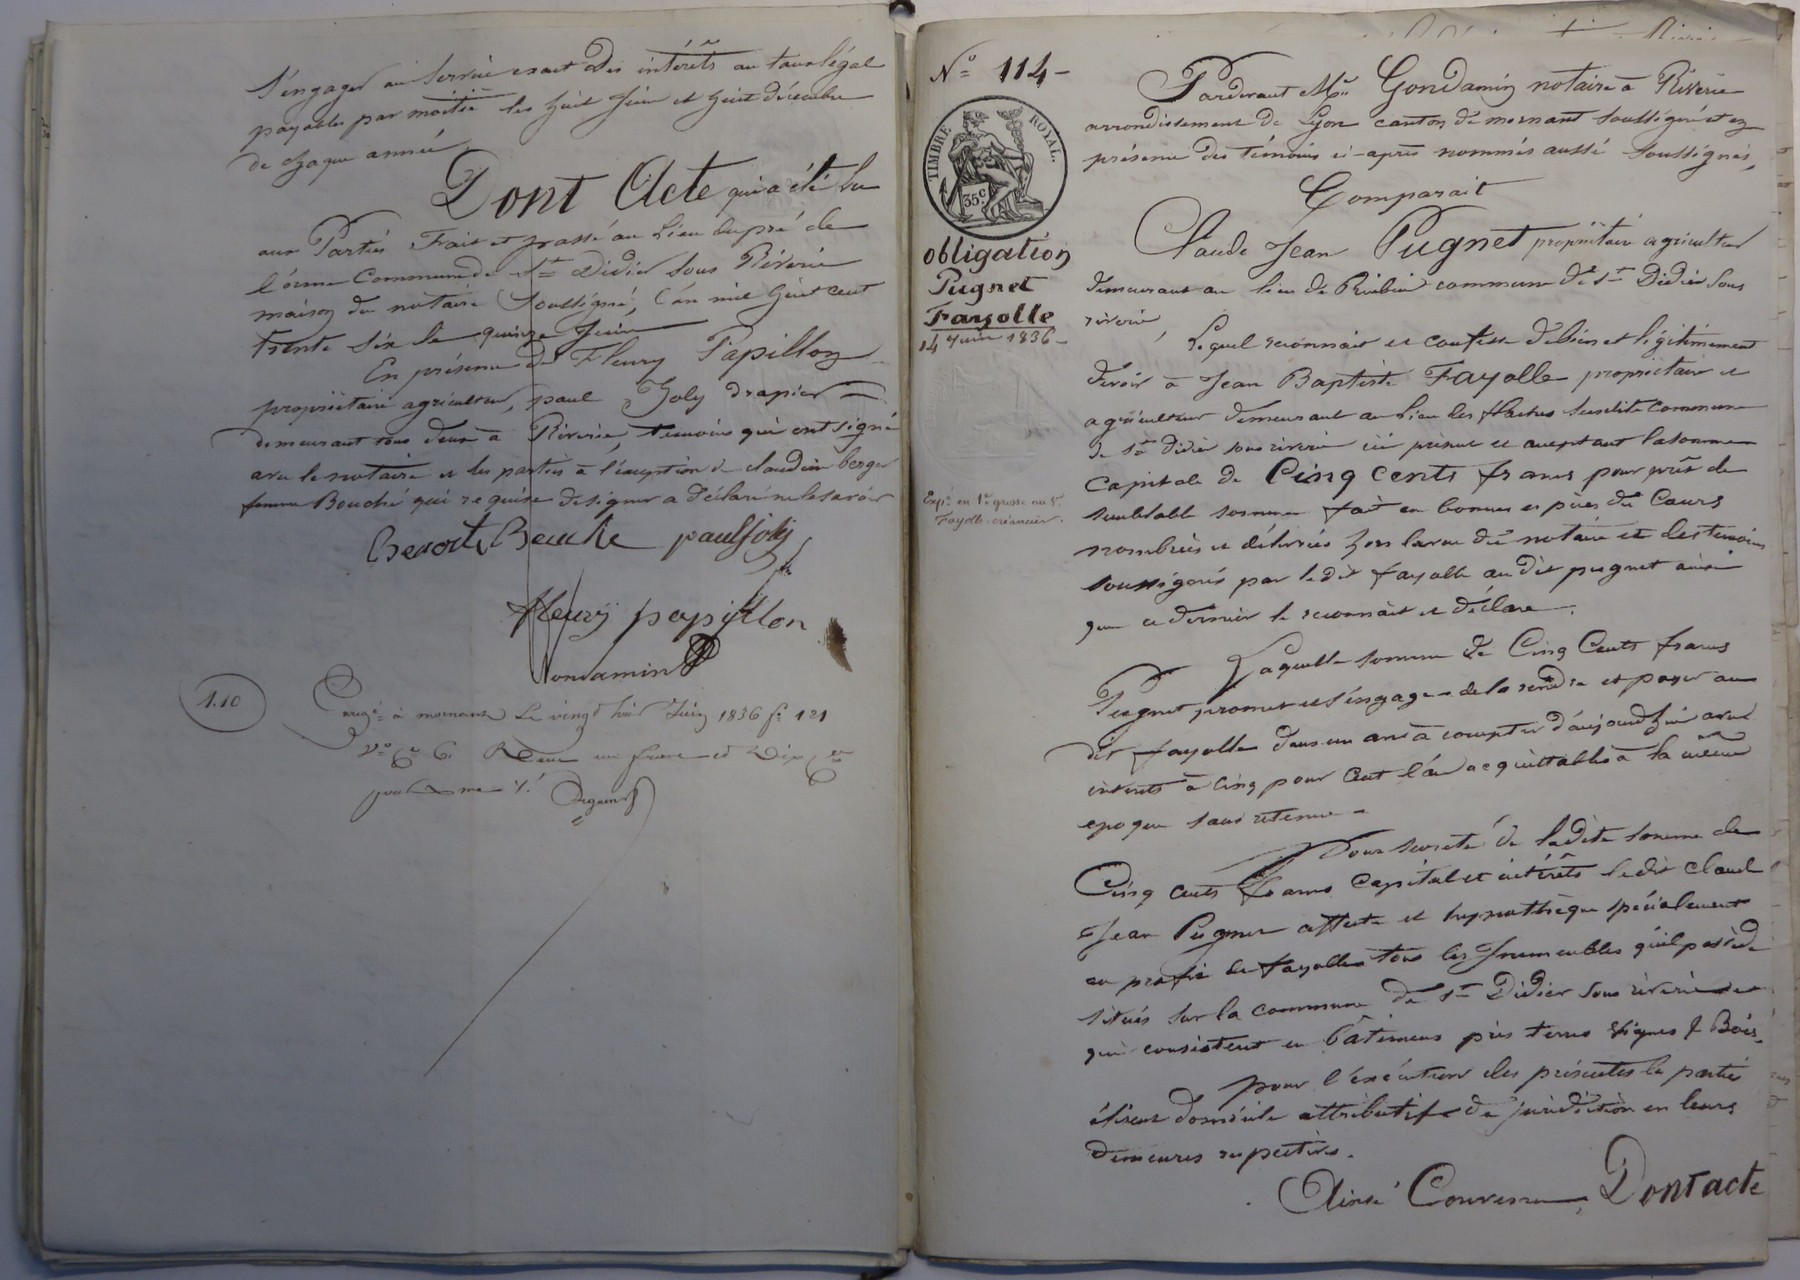 s'engager au service exact des intérêts au taux légal
payables par moitié les huit Juin et huit décembre
de chaque année
Dont Acte qui a été lu
aux Parties Fait et passé au Lieu du pré de
l'orme Commune de St Didier sous Riverie
maison du notaire soussigné, l'an mil huit cent
trente six le quinze Juin
En présence de Fleury Papillon
propriétaire agriculteur, paul Joly drapier
demeurant tous deux à Riverie, temoins qui ont signé
avec le notaire et les parties à l'exception de claudine berger
femme Bouché qui requise de signer a déclaré ne le savoir
Benoit Bouche paul joly
fleury papillon
Condamin
1.10
Enregé à mornant Le vingt huit Juin 1836 fo 121
Vo Ce 6. Reçu un franc et Dix Cen
pour
No 114
TIMBRE ROYAL.
35c
obligation
Pugnet
Fayolle
14 Juin 1836
Expé en 1re grosse au Sr
Fayolle créancier.
Pardevant Me Condamin notaire à Riverie
arrondissement de Lyon canton de mornant soussigné et en
présence des témoins ci-après nommés aussi soussignés,
Comparait
Claude Jean Pugnet propriétaire agriculteur
demeurant au lieu de commune de St Didier sous
riverie,
Lequel reconnait et confesse debien et légitimement
devoir à Jean Baptiste Fayolle propriétaire et
agriculteur demeurant au Lieu les susdite commune
de St didier sous riverie ici présent et acceptant la somme
Capitale de Cinq cents francs pour prêt de
semblable somme fait en bonnes espèces du Cours
nombrées et délivrées hors la vue du notaire et des témoins
soussignés par le dit fayolle au dit pugnet ainsi
que ce dernier le reconnait et déclare.
Laquelle somme de Cinq Cents francs
Pugnet promet et s'engage de la rendre et payer au
dit fayolle dans un an à compter d'aujourd'hui avec
intérêts à cinq pour Cent l'an acquittables à la même
epoque sans retenue
Pour sureté de ladite somme de
Cinq cents francs capital et intérêts ledit claude
Jean Pugnet affecte et hypothèque spécialement
au profit de fayolle tous les Immeubles qu'il possède
situés sur la commune de St Didier sous riverie et
qui consistent en bâtimens près terres vignes & Bois.
pour l'exécution des présentes les parties
élisent domicile attributif de juridiction en leurs
demeures respectives.
Ainsi Convenu, Dont acte